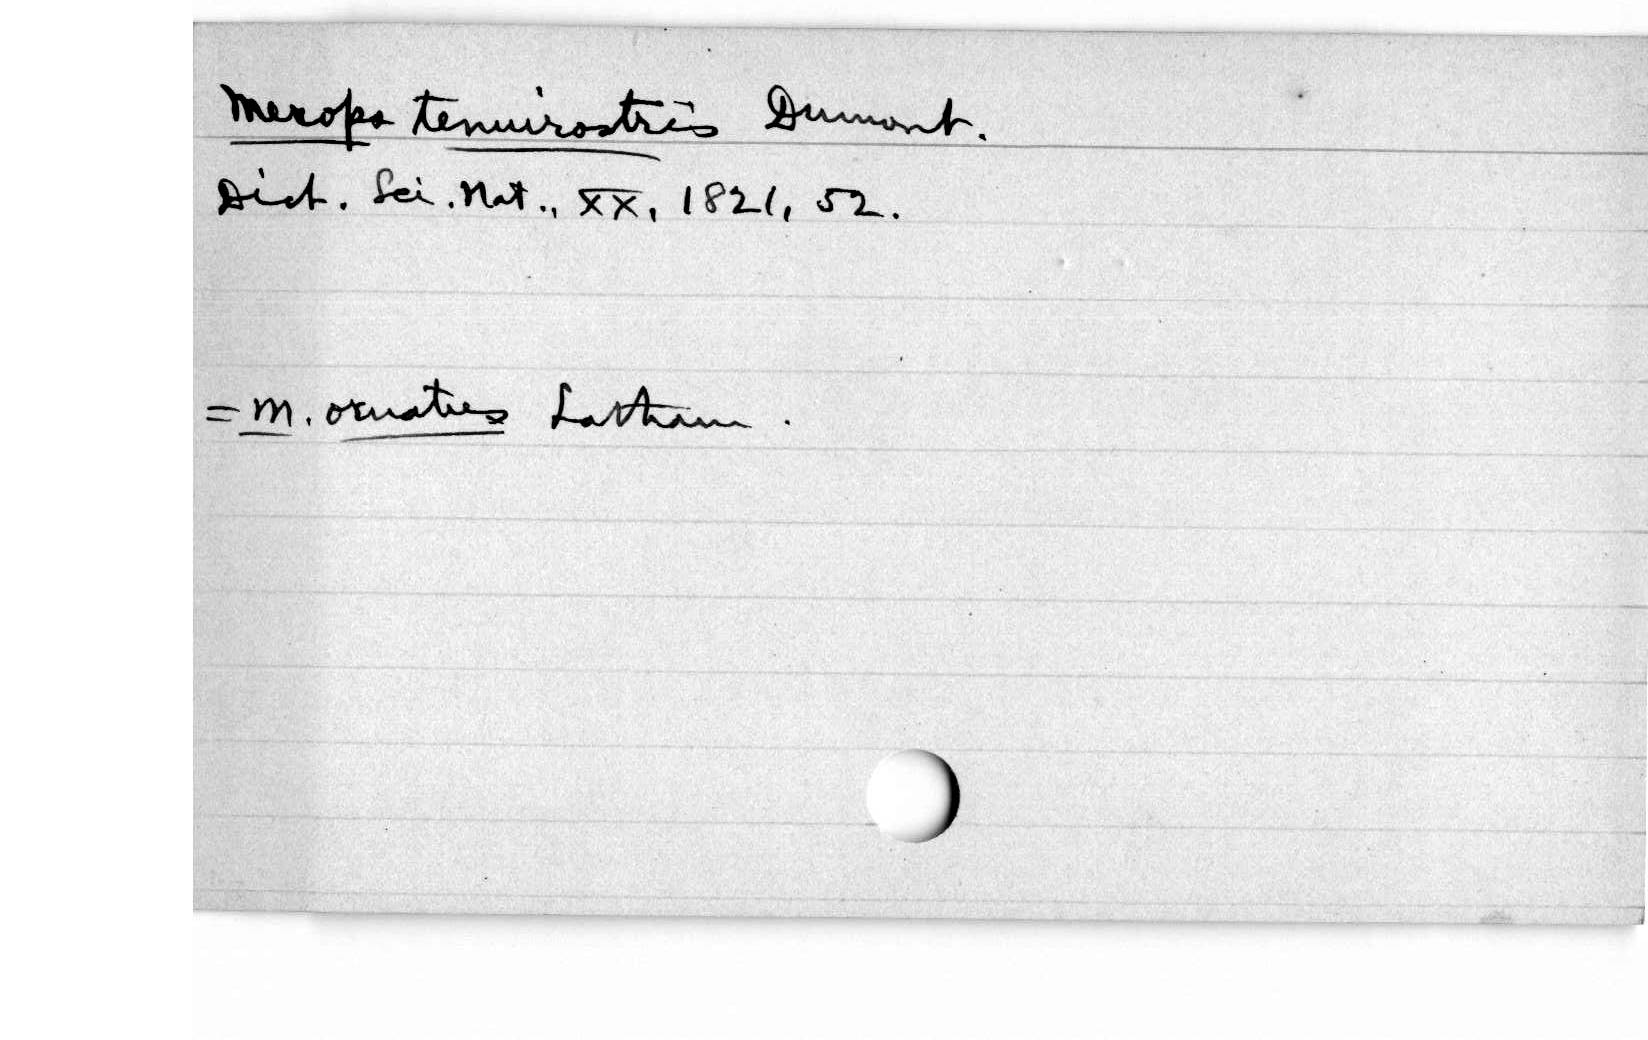 Merops tenuirostris Dumont.
Dict. Sci. Nat., XX, 1821, 52.
= M. ornatus Latham.